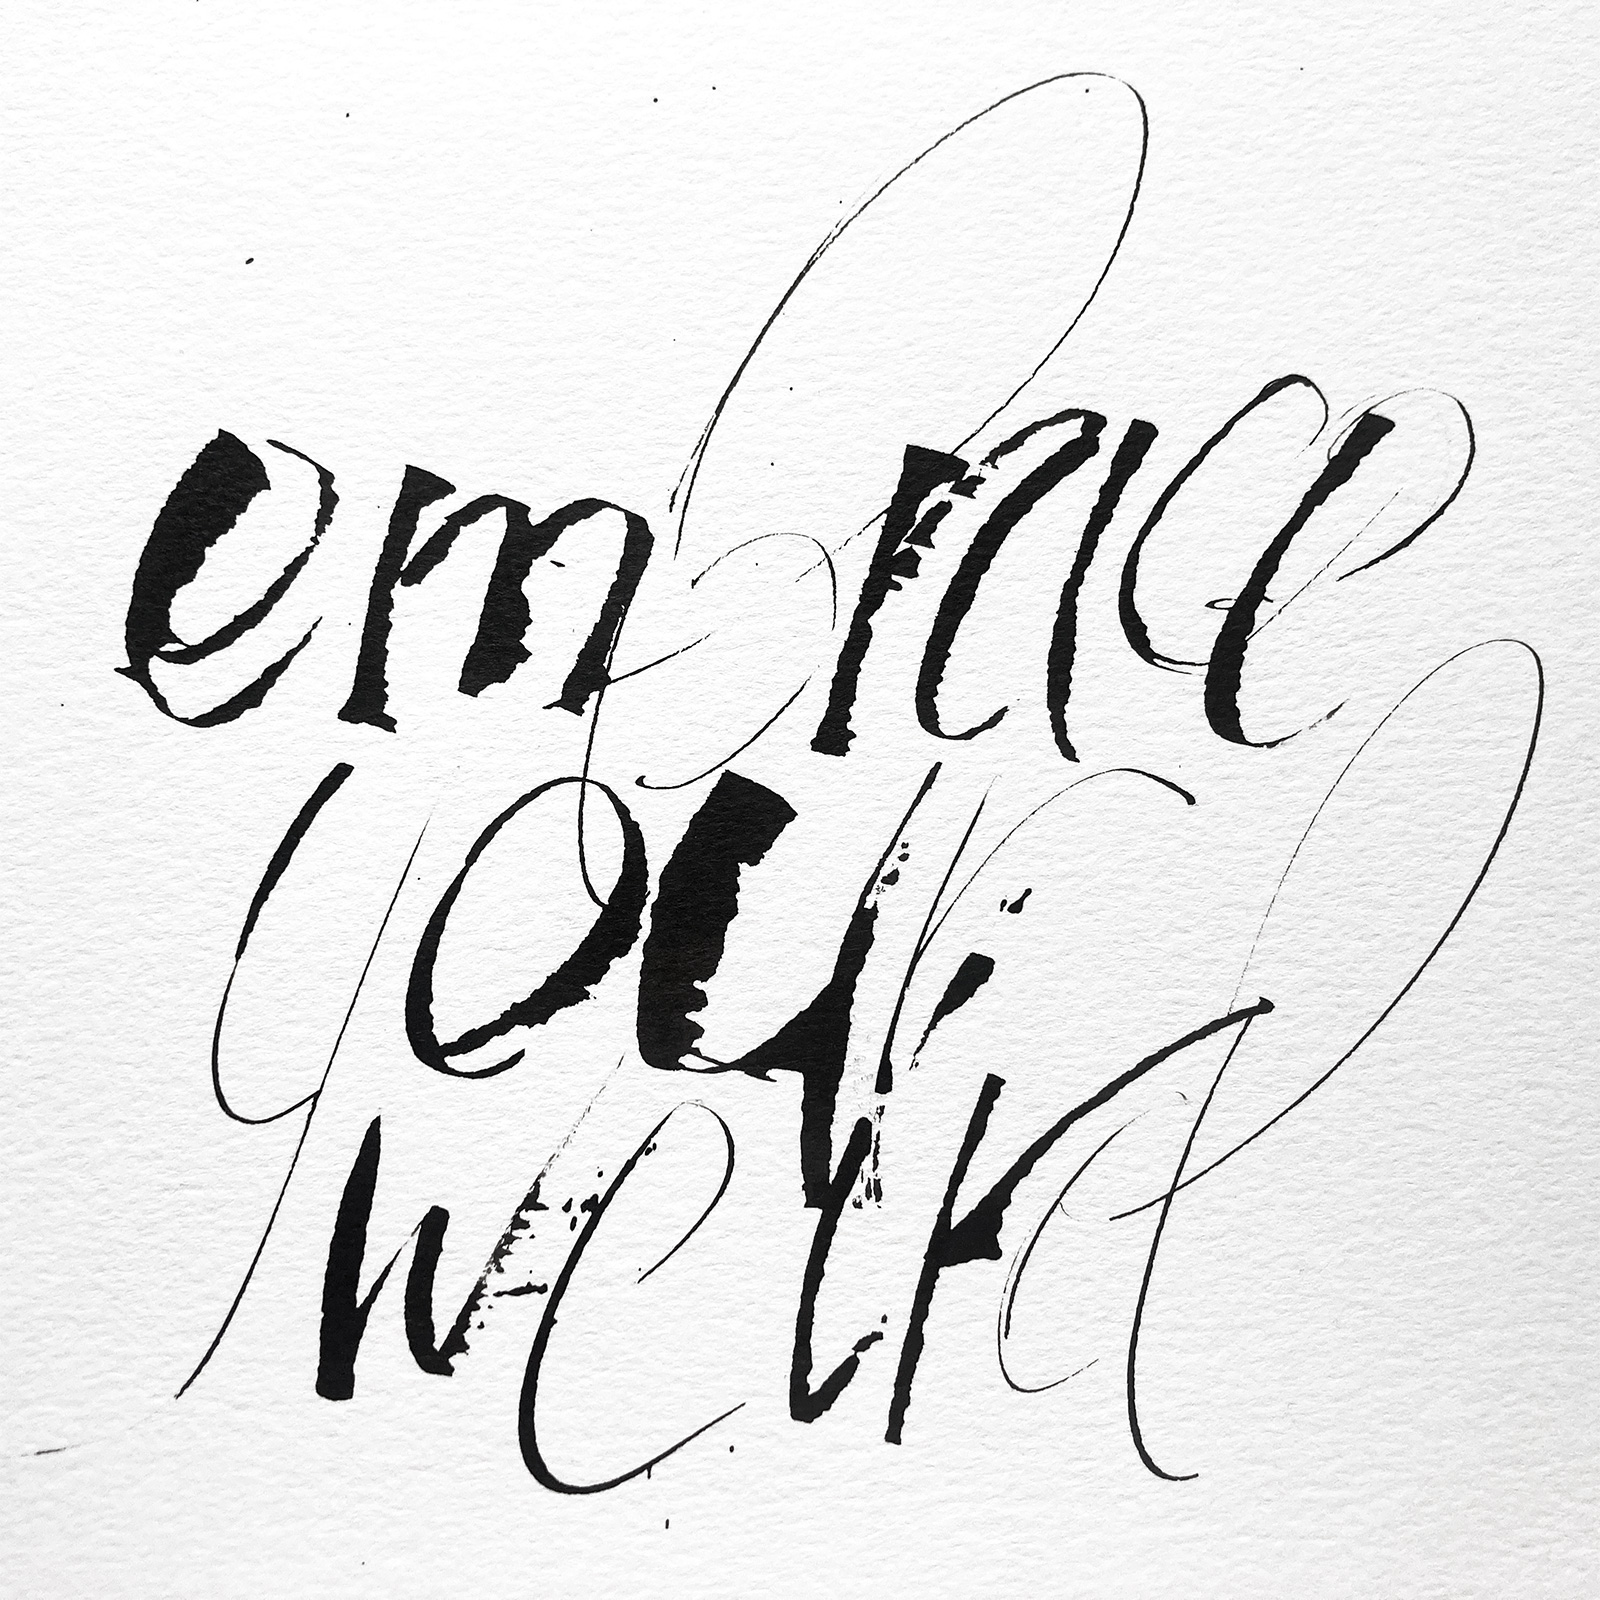 embrace
your
weird